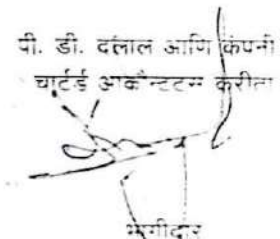 पी. डी. दलाल आणि कंपनी
चार्टर्ड आकौन्टटन्स करीता
भागीदार